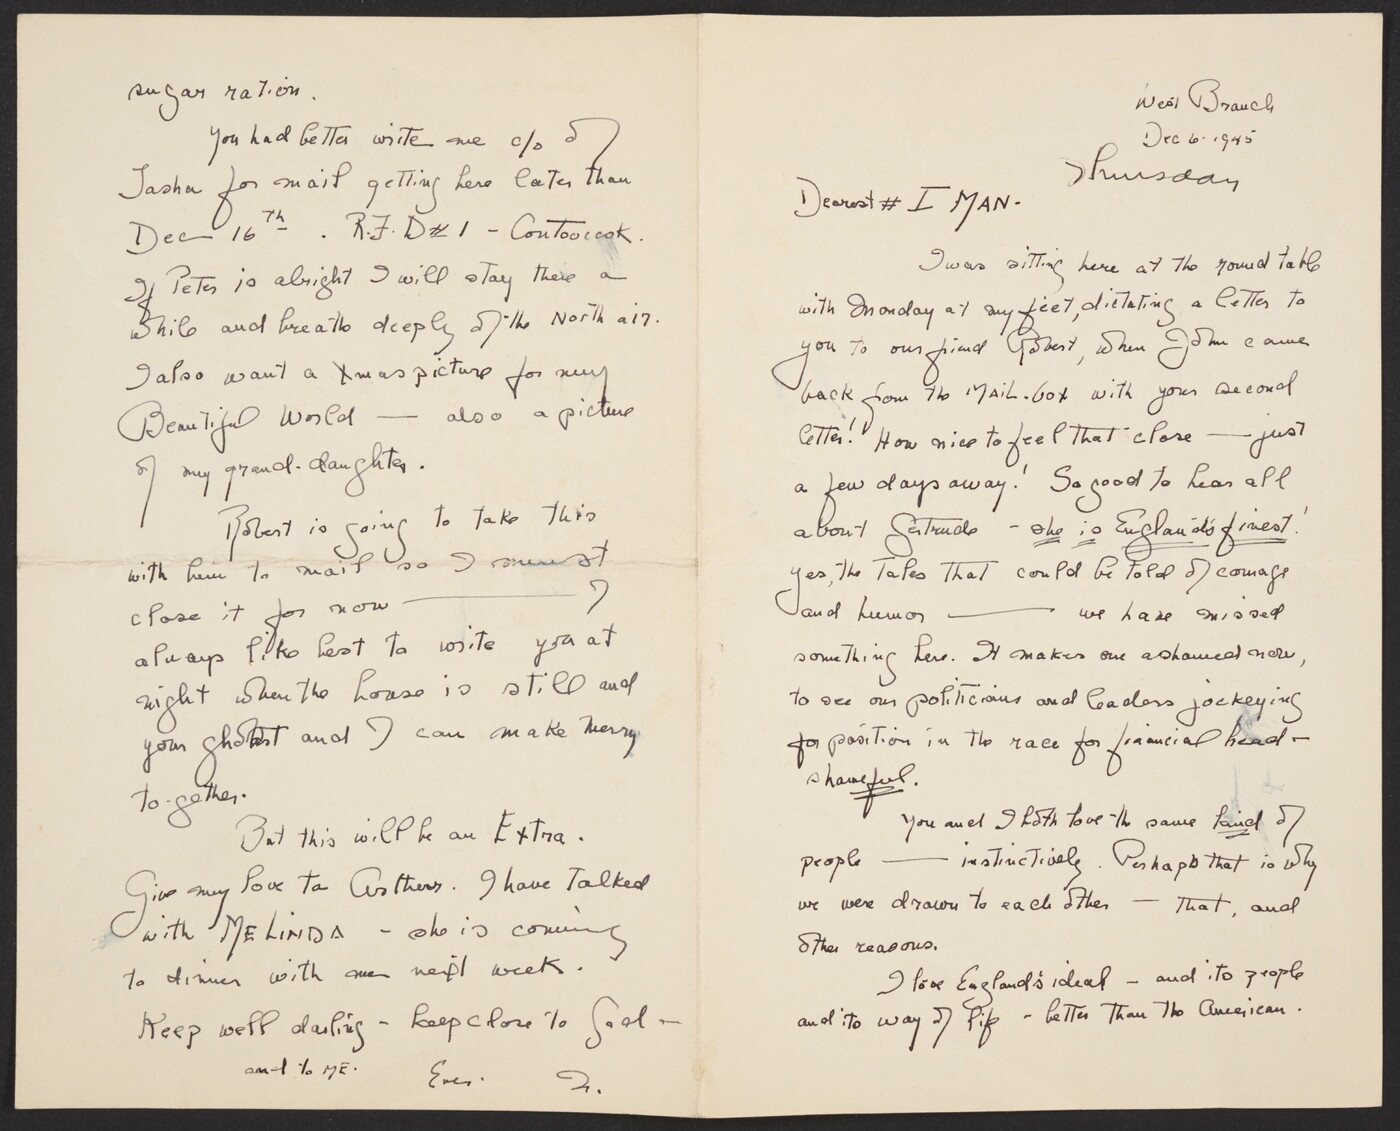 West Branch
Dec 6. 1945
Thursday
Dearest # I MAN.
I was sitting here at the round table
with Monday at my feet, dictating a letter to
you to our friend Robert, when John came
back from the MAIL-box with your second
letter!! How nice to feel that close — just
a few days away! So good to hear all
about Gertrude - she is England's finest!
yes, the tales that could be told of courage
and humor — we have missed
something here. It makes one ashamed now,
to see our politicians and leaders jockeying
for position in the race for financial head-
shameful.
You and I both love the same kind of
people — instinctively. Perhaps that is why
we were drawn to each other — that, and
other reasons.
I love England's ideal - and its people
and its way of life - better than the American.
sugar ration.
You had better write me c/o of
Tasha for mail getting here later than
Dec 16th. R.F.D # 1 - Contoocook.
If Peter is alright I will stay there a
while and breath deeply of the North air.
I also want a Xmas picture for my
Beautiful World — also a picture
of my grand-daughter.
Robert is going to take this
with him to mail so I must
close it for now — I
always like best to write you at
night when the house is still and
your ghost and I can make merry
to-gether.
But this will be an Extra.
Give my love to Arthur. I have talked
with MELINDA - she is coming
to dinner with me next week.
Keep well darling - keep close to God -
and to ME. Ever. Tr.